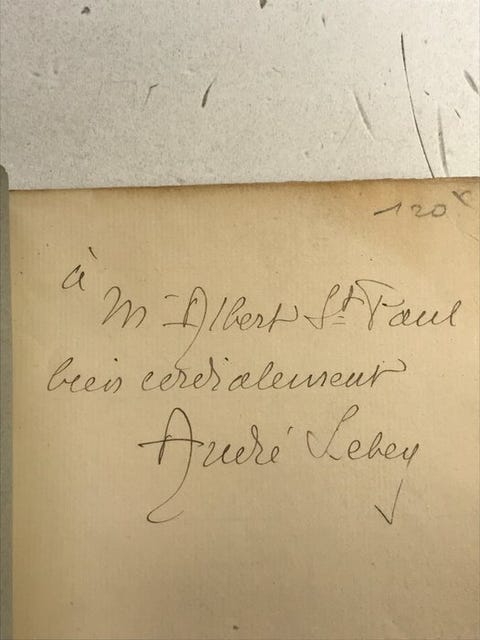 120
à
Mr Albert St Paul
bien cordialement
André Lebey